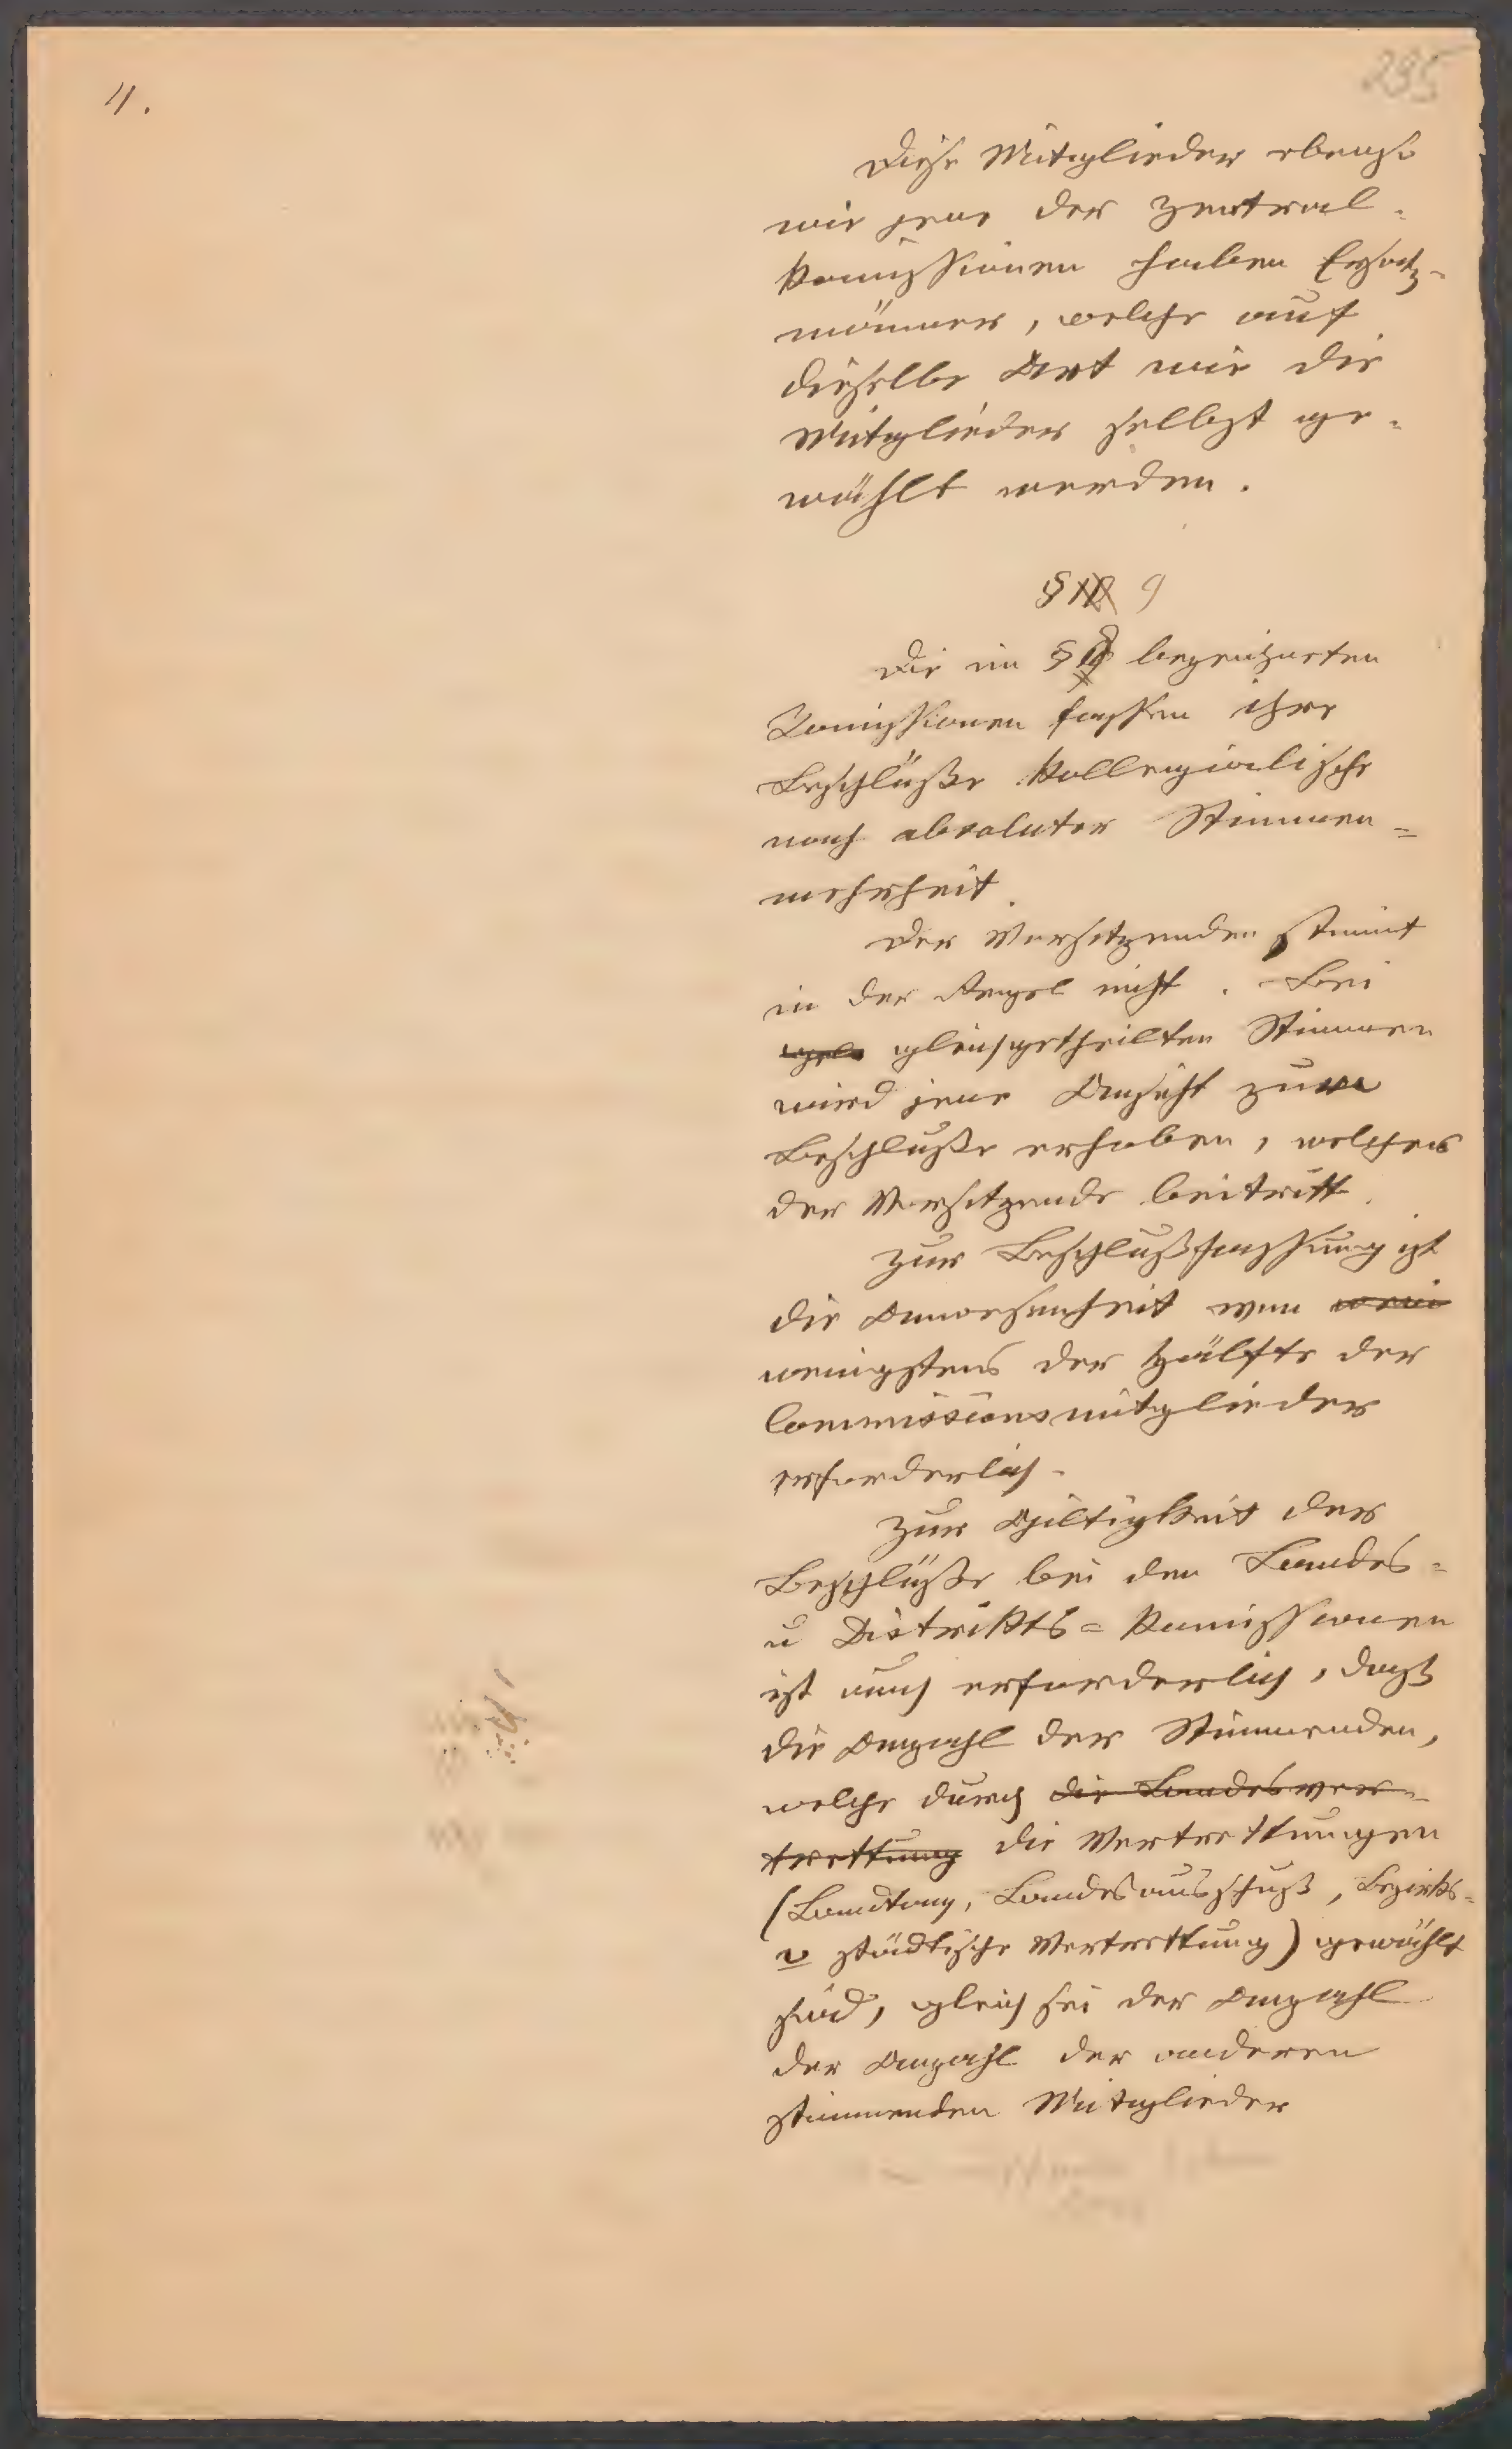 11.
235
Diese Mitglieder ebenso
wie jene der Zentral-
Komissionen haben Ersatz-
männer, welche auf
dieselbe Art wie die
Mitglieder selbst ge-
wählt werden.
§ 9
Die im § bezeichneten
Komissionen fassen ihre
Beschlüße kollegialische
nach absoluter Stimmen=
mehrheit.
Der Vorsitzenden stimmt
in der Regel nicht. Bei
gleichgetheilten Stimmen
wird jene Ansicht zum
Beschluße erhoben, welcher
der Vorsitzende beitritt.
Zur Beschlußfassung ist
die Anwesenheit von
wenigstens der Hälfte der
Commissionsmitglieder
erforderlich.
Zur Giltigkeit der
Beschlüße bei den Landes=
u Distrikts=Komissionen
ist auch erforderlich, dass
die Anzahl der Stimmenden,
welche durch die Landesver-
trettung die Vertrettungen
(Landtag, Landesausschuss, Bezirks=
u städtische Vertrettung) gewählt
sind, gleich sei der Anzahl
der Anzahl der anderen
stimmenden Mitglieder